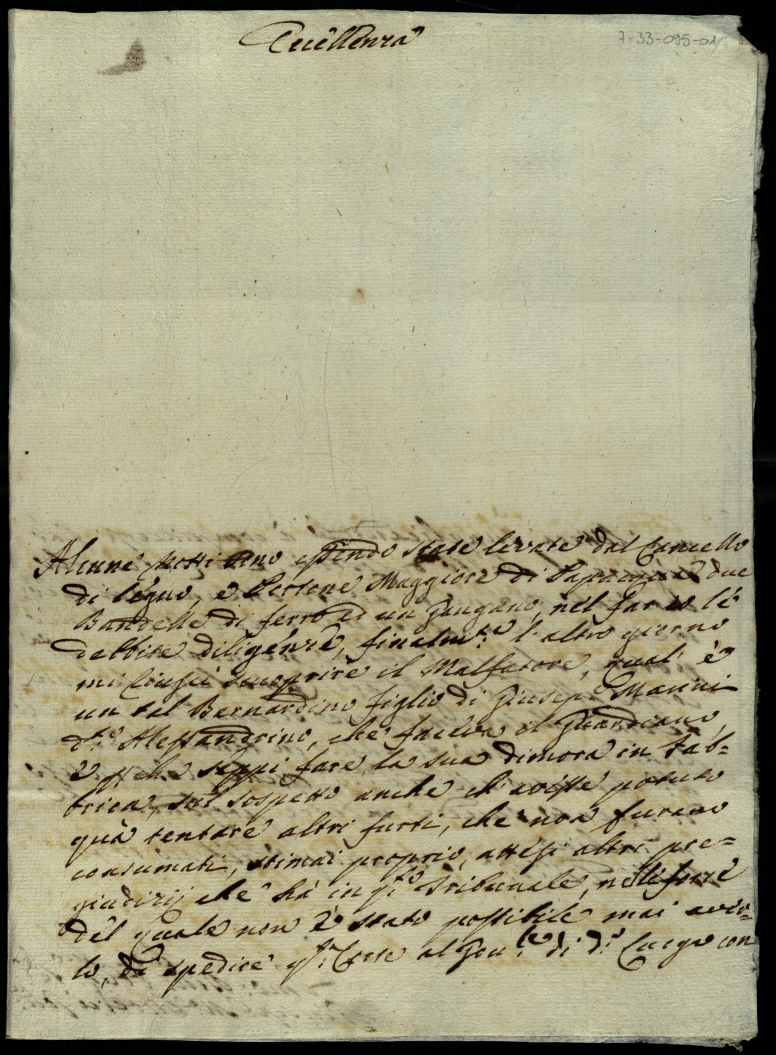 7-33-095-01
Eccellenza
Alcune Notti sono essendo state levate dal Cancello
di legno, e Pertone Maggiore di due
Bandelle di ferro ed un Gangano, nel far io le
debbite diligenze, finalm.te l'altro giorno
mi riuscì scuoprire il Malfatore, quali è
un tal Bernardino figlio di Giusepe Marini
d.o Alessandrino, che faceva il Guardiano,
e p che seppi fare la sua dimora in Fab=
brica, sul sospetto anche ch'avesse potuto
quà tentare altri furti, che non furono
consumati, stimai proprio, attesi altri pre=
giudizij che hà in q.to Tribunale, nelle forze
del quale non è stato possibile mai aver=
lo, di spedire q.ta Corte al Gov.re di d.o Luogo con